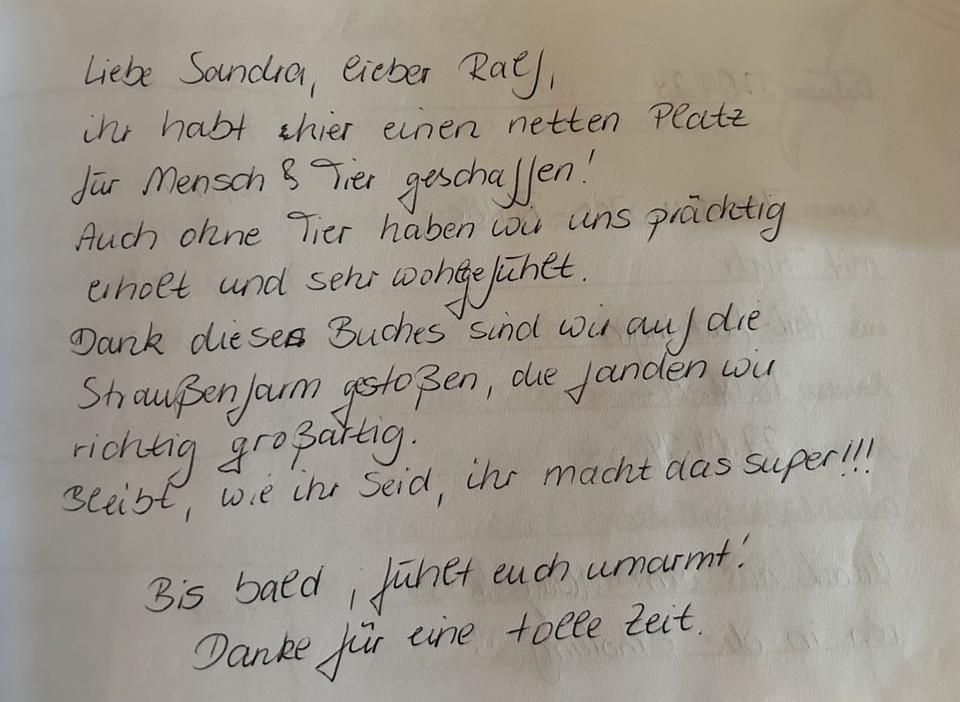 Liebe Sandra, lieber Ralf,
ihr habt hier einen netten Platz
für Mensch & Tier geschaffen!
Auch ohne Tier haben wir uns prächtig
erholt und sehr wohlgefühlt.
Dank dieses Buches sind wir auf die
Straußenfarm gestoßen, die fanden wir
richtig großartig.
Bleibt, wie ihr seid, ihr macht das super!!!
Bis bald, fühlt euch umarmt!
Danke für eine tolle Zeit.